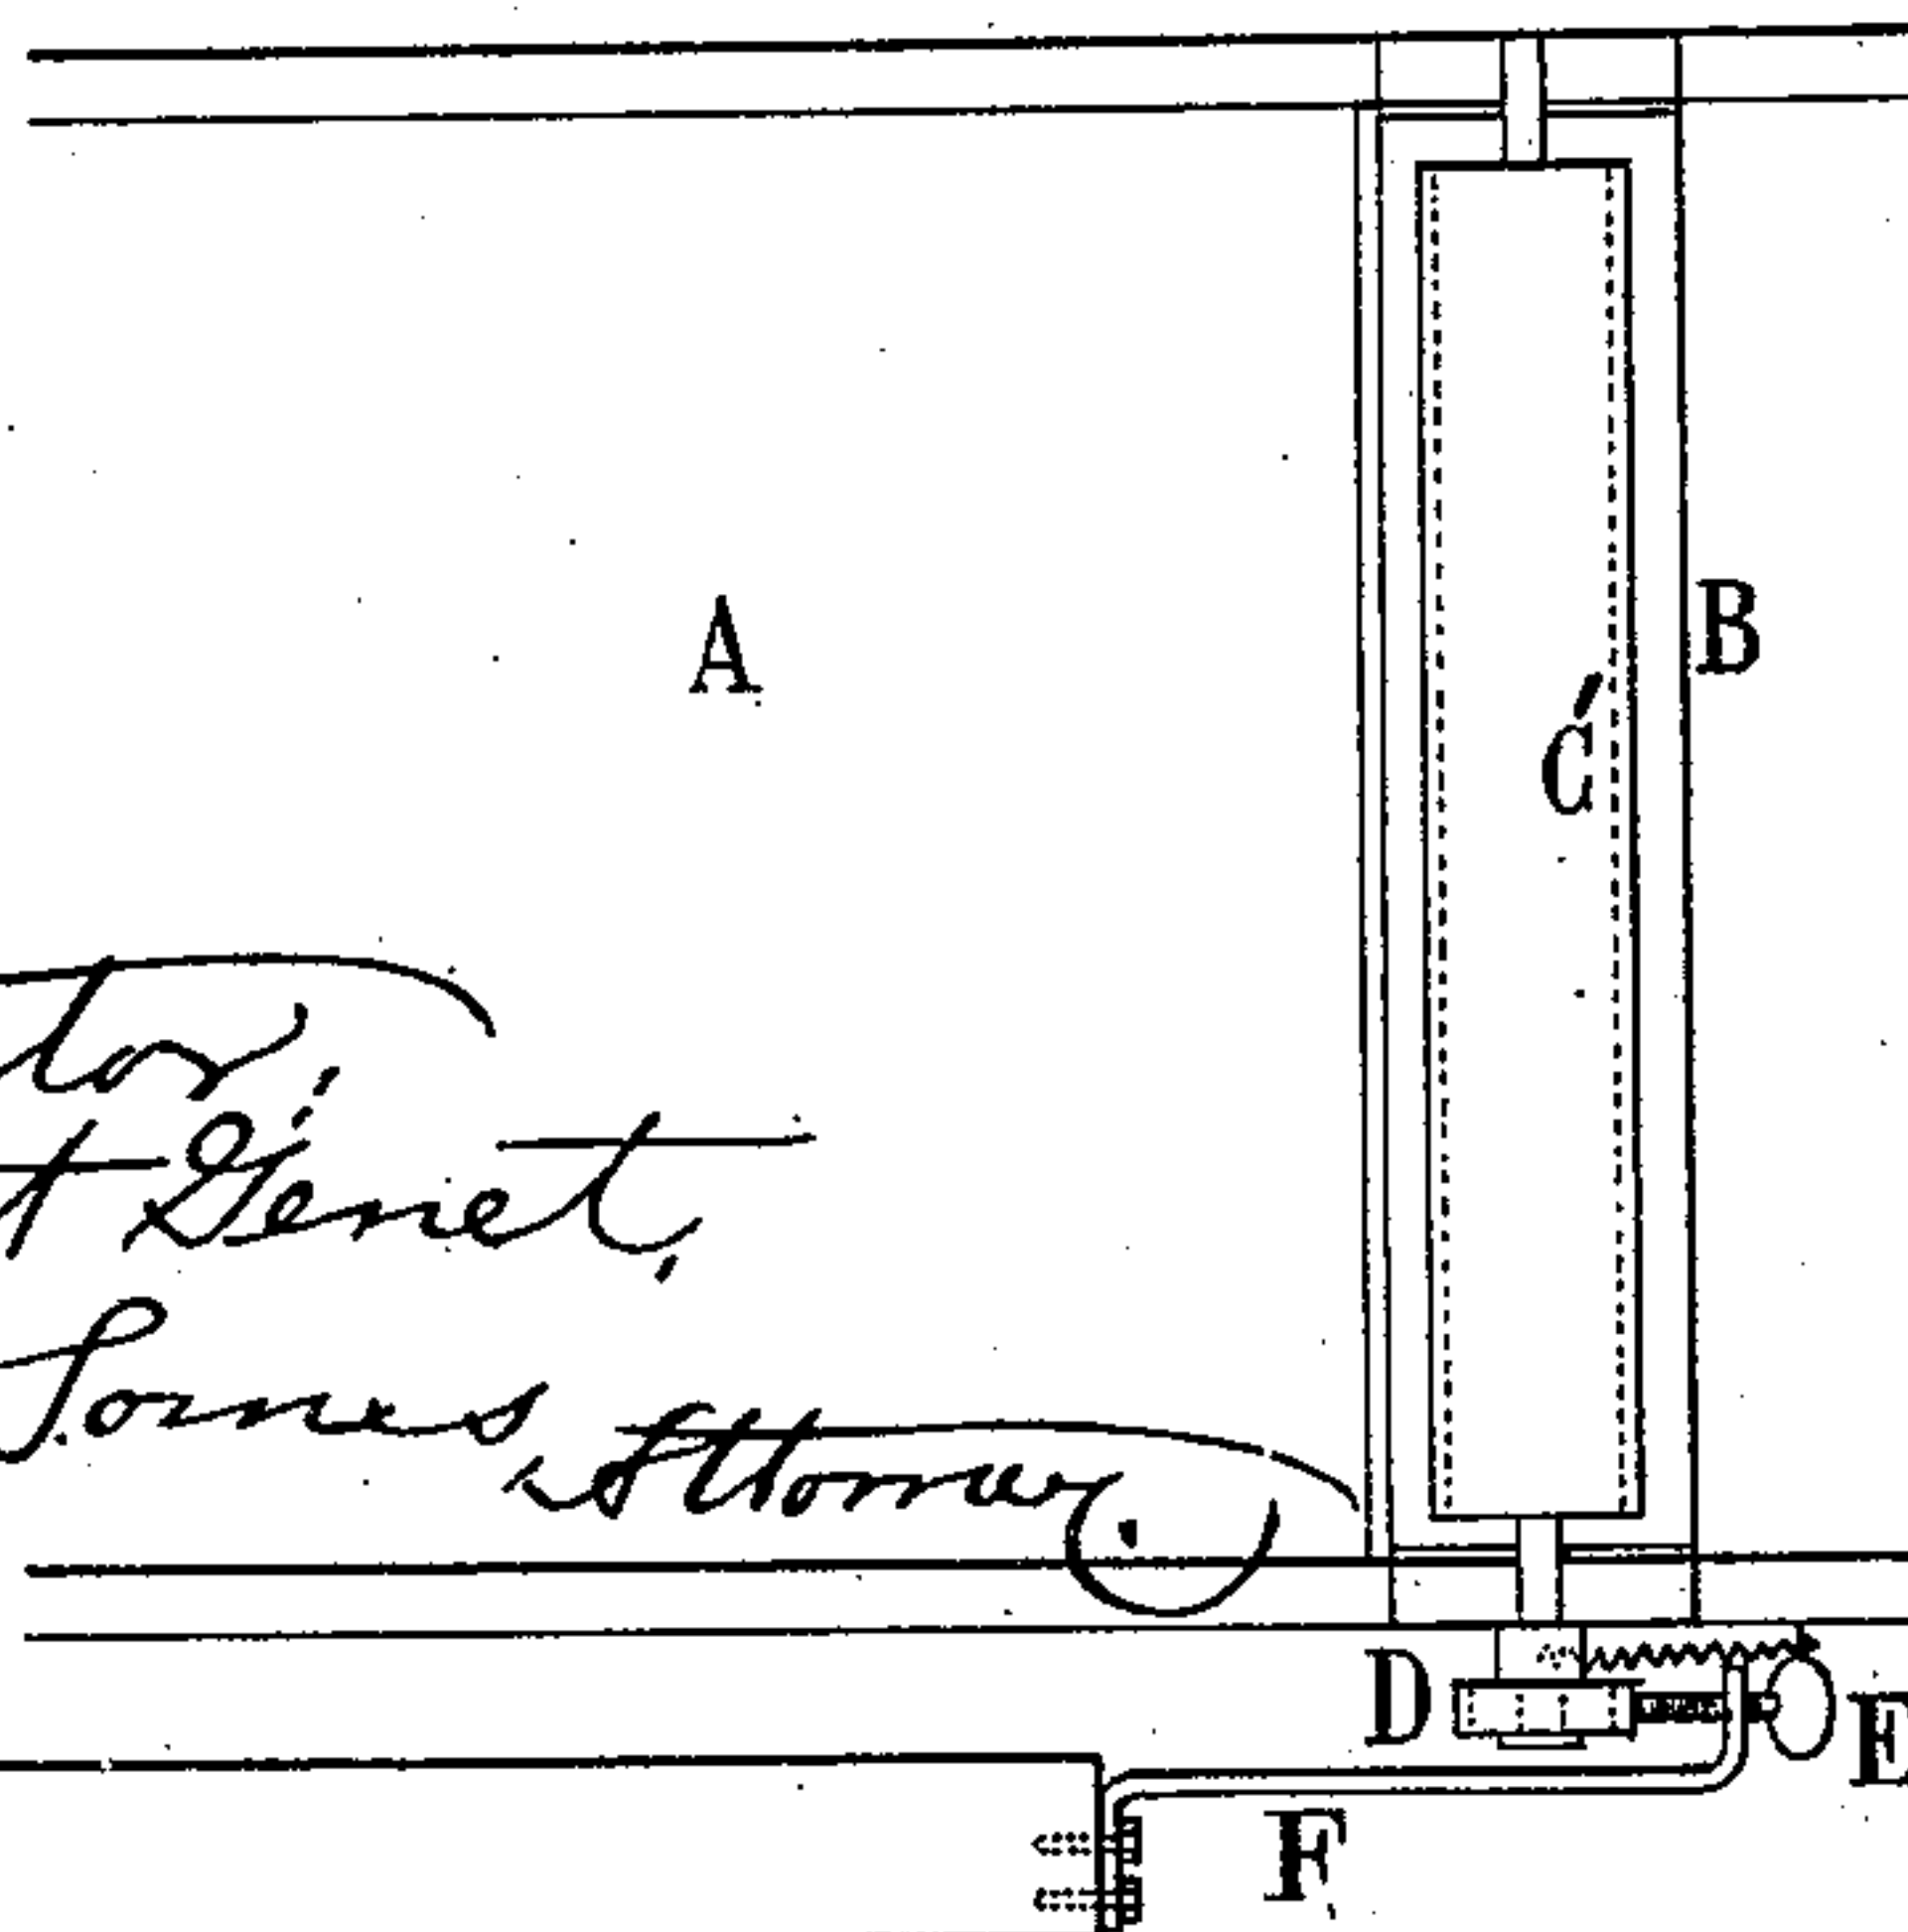 A
B
C'
tor
t Genet,
Somes
Attorney.
D
E
F